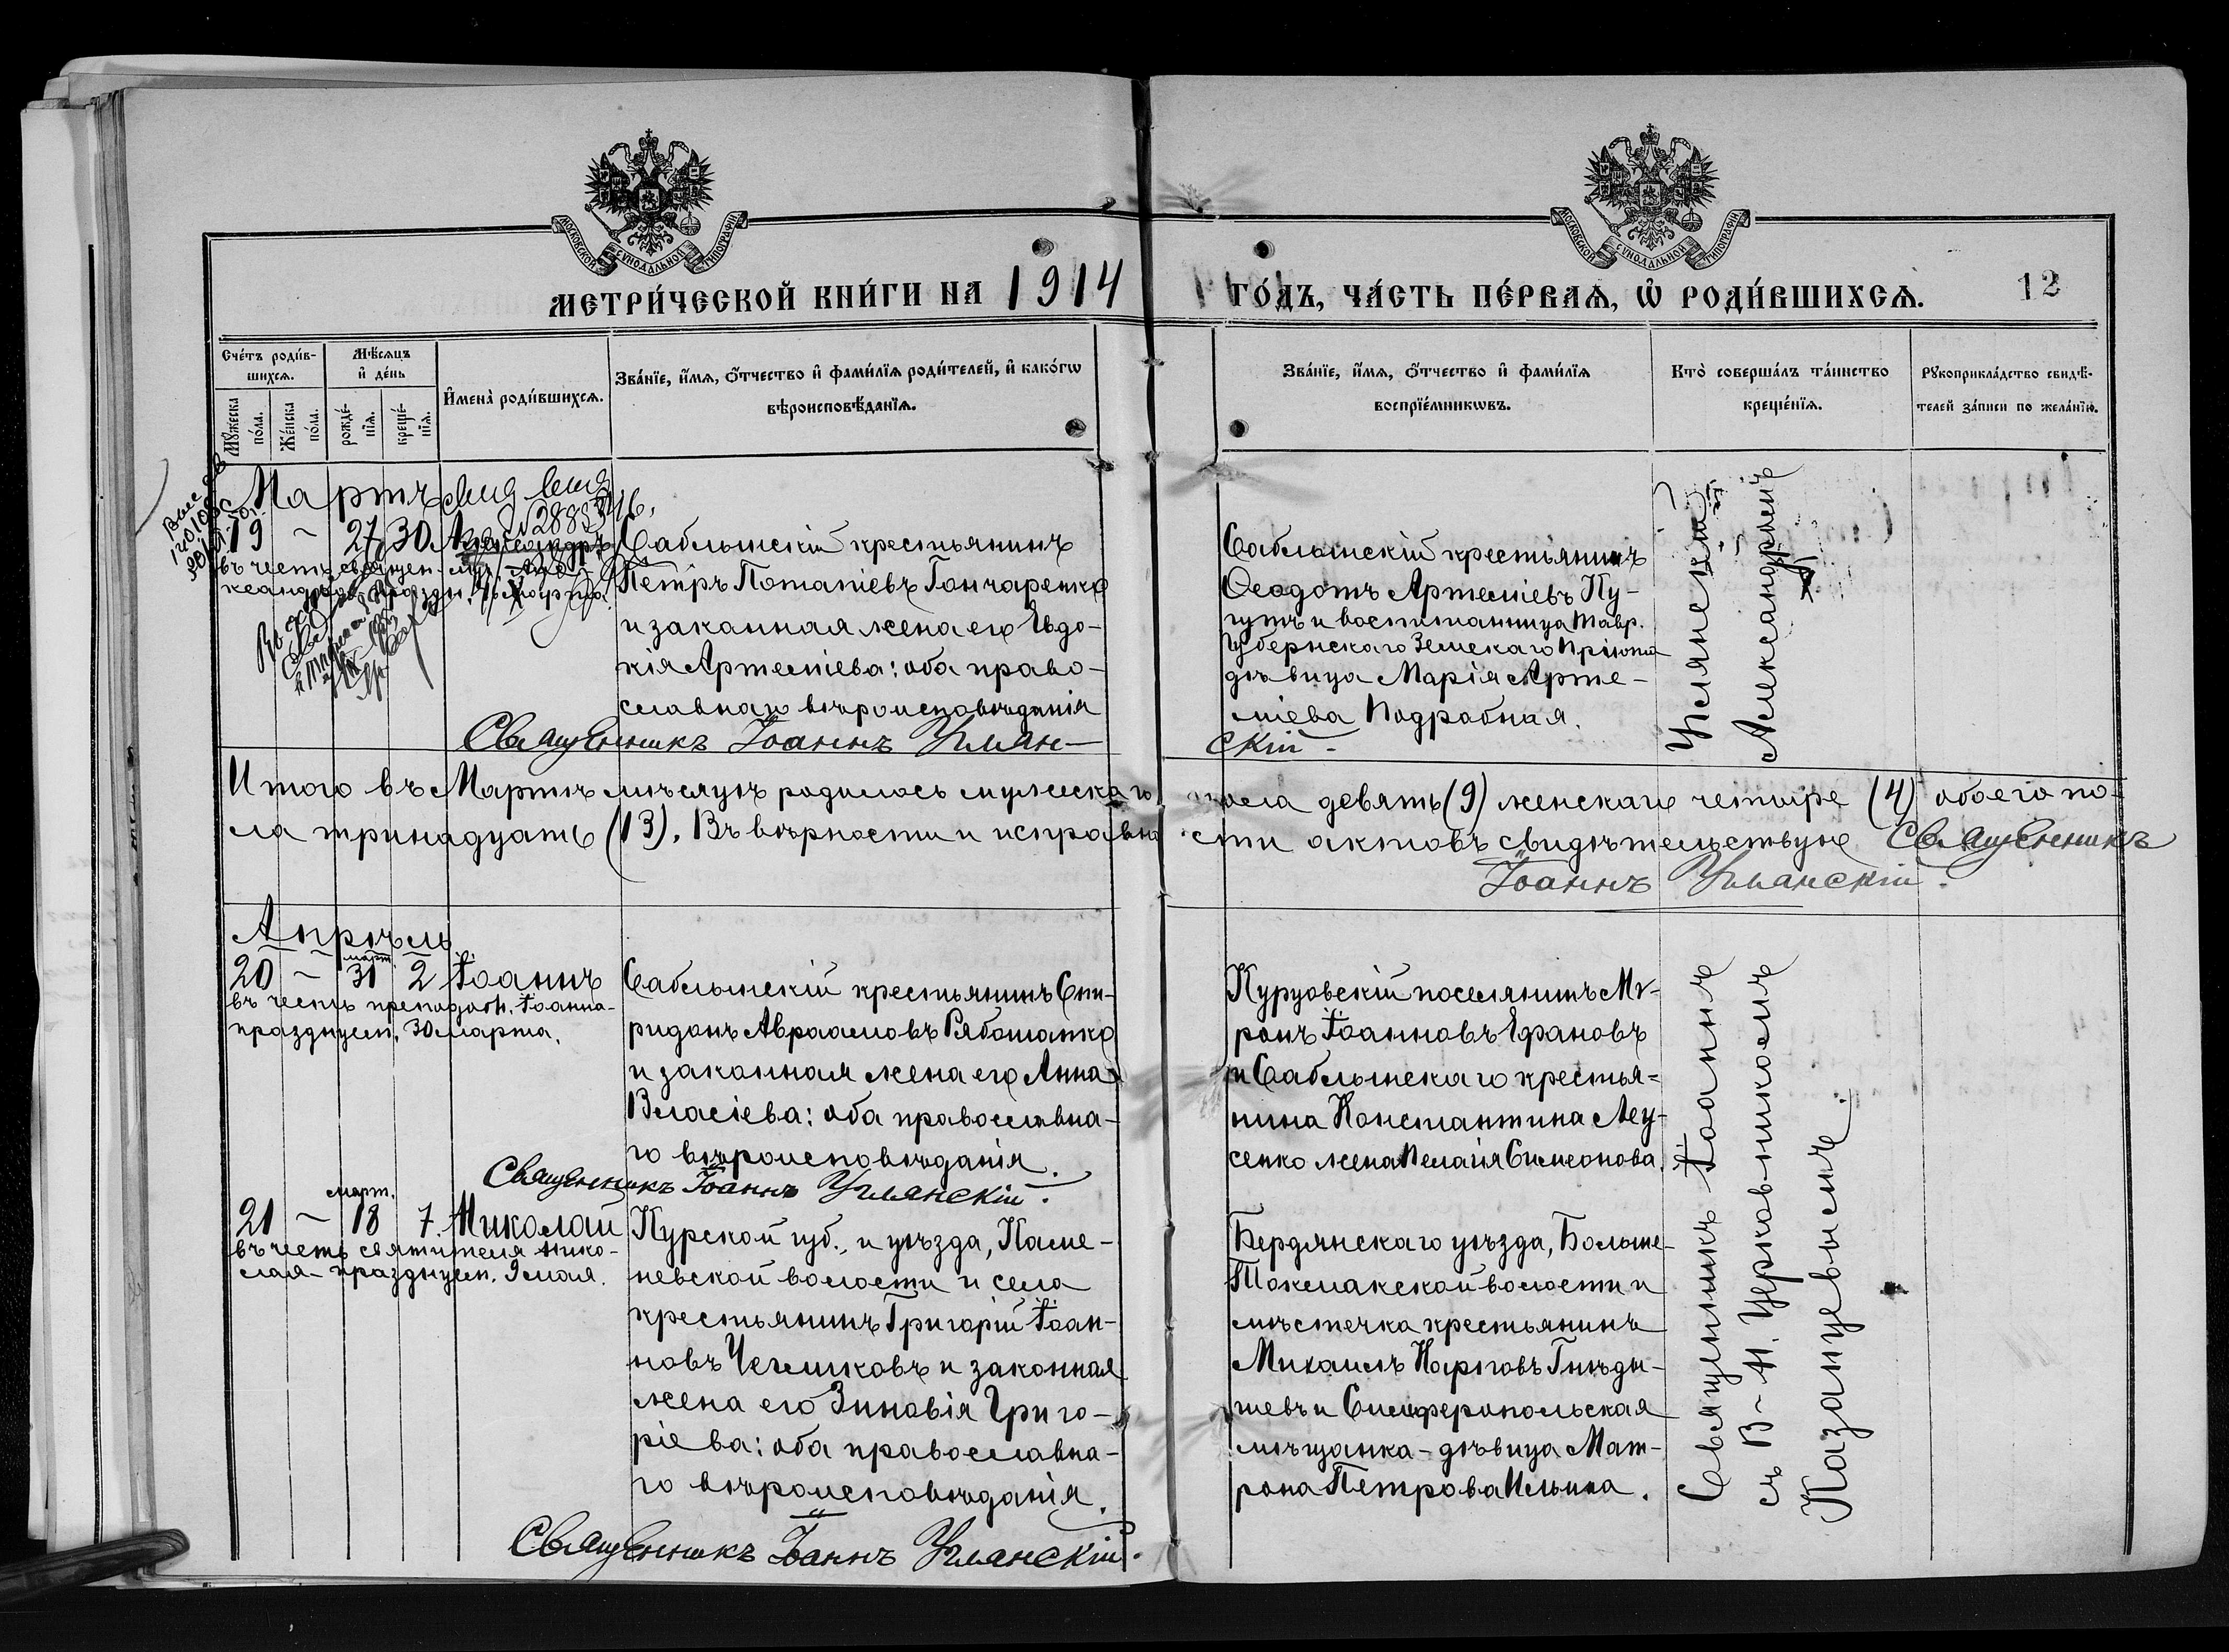 МОСКОВСКОЙ СѴНОДАЛЬНОЙ ТИПОГРАФІИ
МОСКОВСКОЙ СѴНОДАЛЬНОЙ ТИПОГРАФІИ
МЕТРИ́ЧЕСКОЙ КНИ́ГИ НА 1914 ГО́ДЪ, ЧА́СТЬ ПЕ́РВАѦ, Ѡ҆ РОДИ́ВШИХСѦ.
12
Сче́тъ роди́в-
шихсѧ.
Мꙋ́жеска по́ла.
Же́нска по́ла.
Мѣ́сѧцъ
и҆ де́нь
рожде́-
нїѧ.
креще́-
нїѧ.
И҆мена̀ роди́вшихсѧ.
Зва́нїе, и҆́мѧ, ѻ҆́тчество и҆ фами́лїѧ роди́телей, и҆ како́гѡ
вѣроисповѣ́данїѧ.
Зва́нїе, и҆́мѧ, ѻ҆́тчество и҆ фами́лїѧ
воспрїе́мникѡвъ.
Кто̀ соверша́лъ та́инство
креще́нїѧ.
Рꙋкоприкла́дство свидѣ́-
телей за́писи по жела́нїю.
Мартъ
19 ~ 27 30 Александръ
въ честь священ.-муч. Але-
ксандра праздн. Марта.
Саблынскій крестьянинъ
Петръ Потапіевъ Гончаренко
и законная жена его Евдо-
кія Артеміева: оба право-
славнаго вѣроисповѣданія
Саблынскій крестьянинъ
Ѳеодотъ Артеміевъ Ку-
и воспитанница Тавр.
Губернскаго Земскаго Пріюта
дѣвица Марія Арте-
міева Подробная.
Александромъ
Священникъ Іоаннъ Углян-
скій.
Итого въ Мартѣ мѣсяцѣ родилось мужескаго пола девять (9) женскаго четыре (4) обоего по-
ла тринадцать (13). Въ вѣрности и исправности актовъ свидѣтельствую Священникъ
Іоаннъ Углянскій.
Апрѣль
20 ~ март. 31 2 Іоаннъ
въ честь преподобн. Іоанна-
празднуем. 30 марта.
Саблынскій крестьянинъ Спи-
ридонъ Авраамовъ Рябошапко
и законная жена его Анна
Власіева: оба православна-
го вѣроисповѣданія.
Курцовскій поселянинъ Мѵ-
ронъ Іоанновъ Ефановъ
и Саблынскаго крестья-
нина Константина Леу-
сенко жена Пелагія Симеонова.
Священникъ Іоаннъ Углянскій.
21 ~ март. 18 7. Николай
въ честь святителя Нико-
лая - празднуем. 9 мая.
Курской губ., и уѣзда, Каме-
невской волости и села
крестьянинъ Григорій Іоан-
новъ и законная
жена его Зиновія Григо-
ріева: оба православна-
го вѣроисповѣданія.
Бердянскаго уѣзда, Больше-
Токмакской волости и
мѣстечка крестьянинъ
Михаилъ Карповъ Гнѣды-
шевъ и Симферопольская
мѣщанка - дѣвица Мат-
рона Петрова Ильина.
Священникъ Іоаннъ
съ В-И. Церковникомъ
Казанцевымъ.
Священникъ Іоаннъ Углянскій.